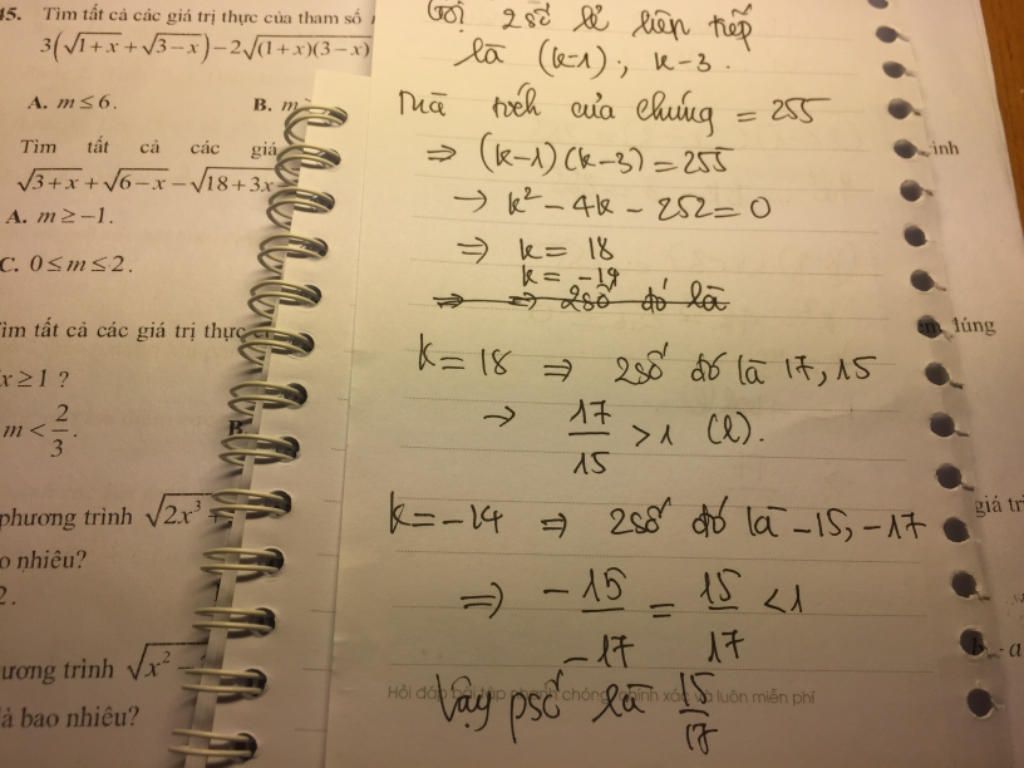 45. Tìm tất cả các giá trị thực của tham số
3(√1+x + √3−x) − 2√(1+x)(3−x)
A. m ≤ 6.
B. m
Tìm tất cả các giá
√3+x + √6−x − √18+3x
A. m ≥ −1.
C. 0 ≤ m ≤ 2.
Tìm tất cả các giá trị thực
x ≥ 1 ?
m < 2/3.
B
phương trình √2x³ +
o nhiêu?
2.
ương trình √x² −
à bao nhiêu?
Gọi 2 số lẻ liên tiếp
là (k-1); k-3.
mà tích của chúng = 255
⇒ (k-1)(k-3) = 255
→ k² - 4k - 252 = 0
⇒ k = 18
k = -14
⇒ ⇒ 2 số đó là
k = 18 ⇒ 2 số đó là 17, 15
→ 17/15 > 1 (l).
k = -14 ⇒ 2 số đó là -15, -17
⇒ -15/-17 = 15/17 < 1
Vậy psố là 15/17
Hỏi đáp bài tập nhanh chóng, chính xác và luôn miễn phí
inh
đúng
giá trị
- a